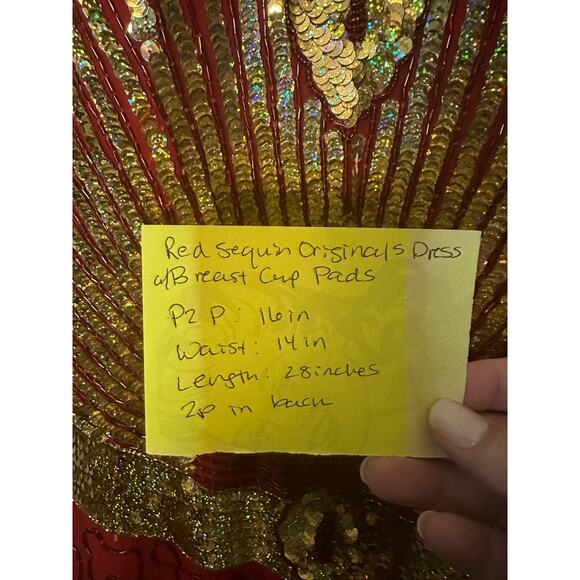 Red Sequin Originals Dress
w/Breast Cup Pads
P2P: 16in
Waist: 14in
Length: 28inches
Zip in back